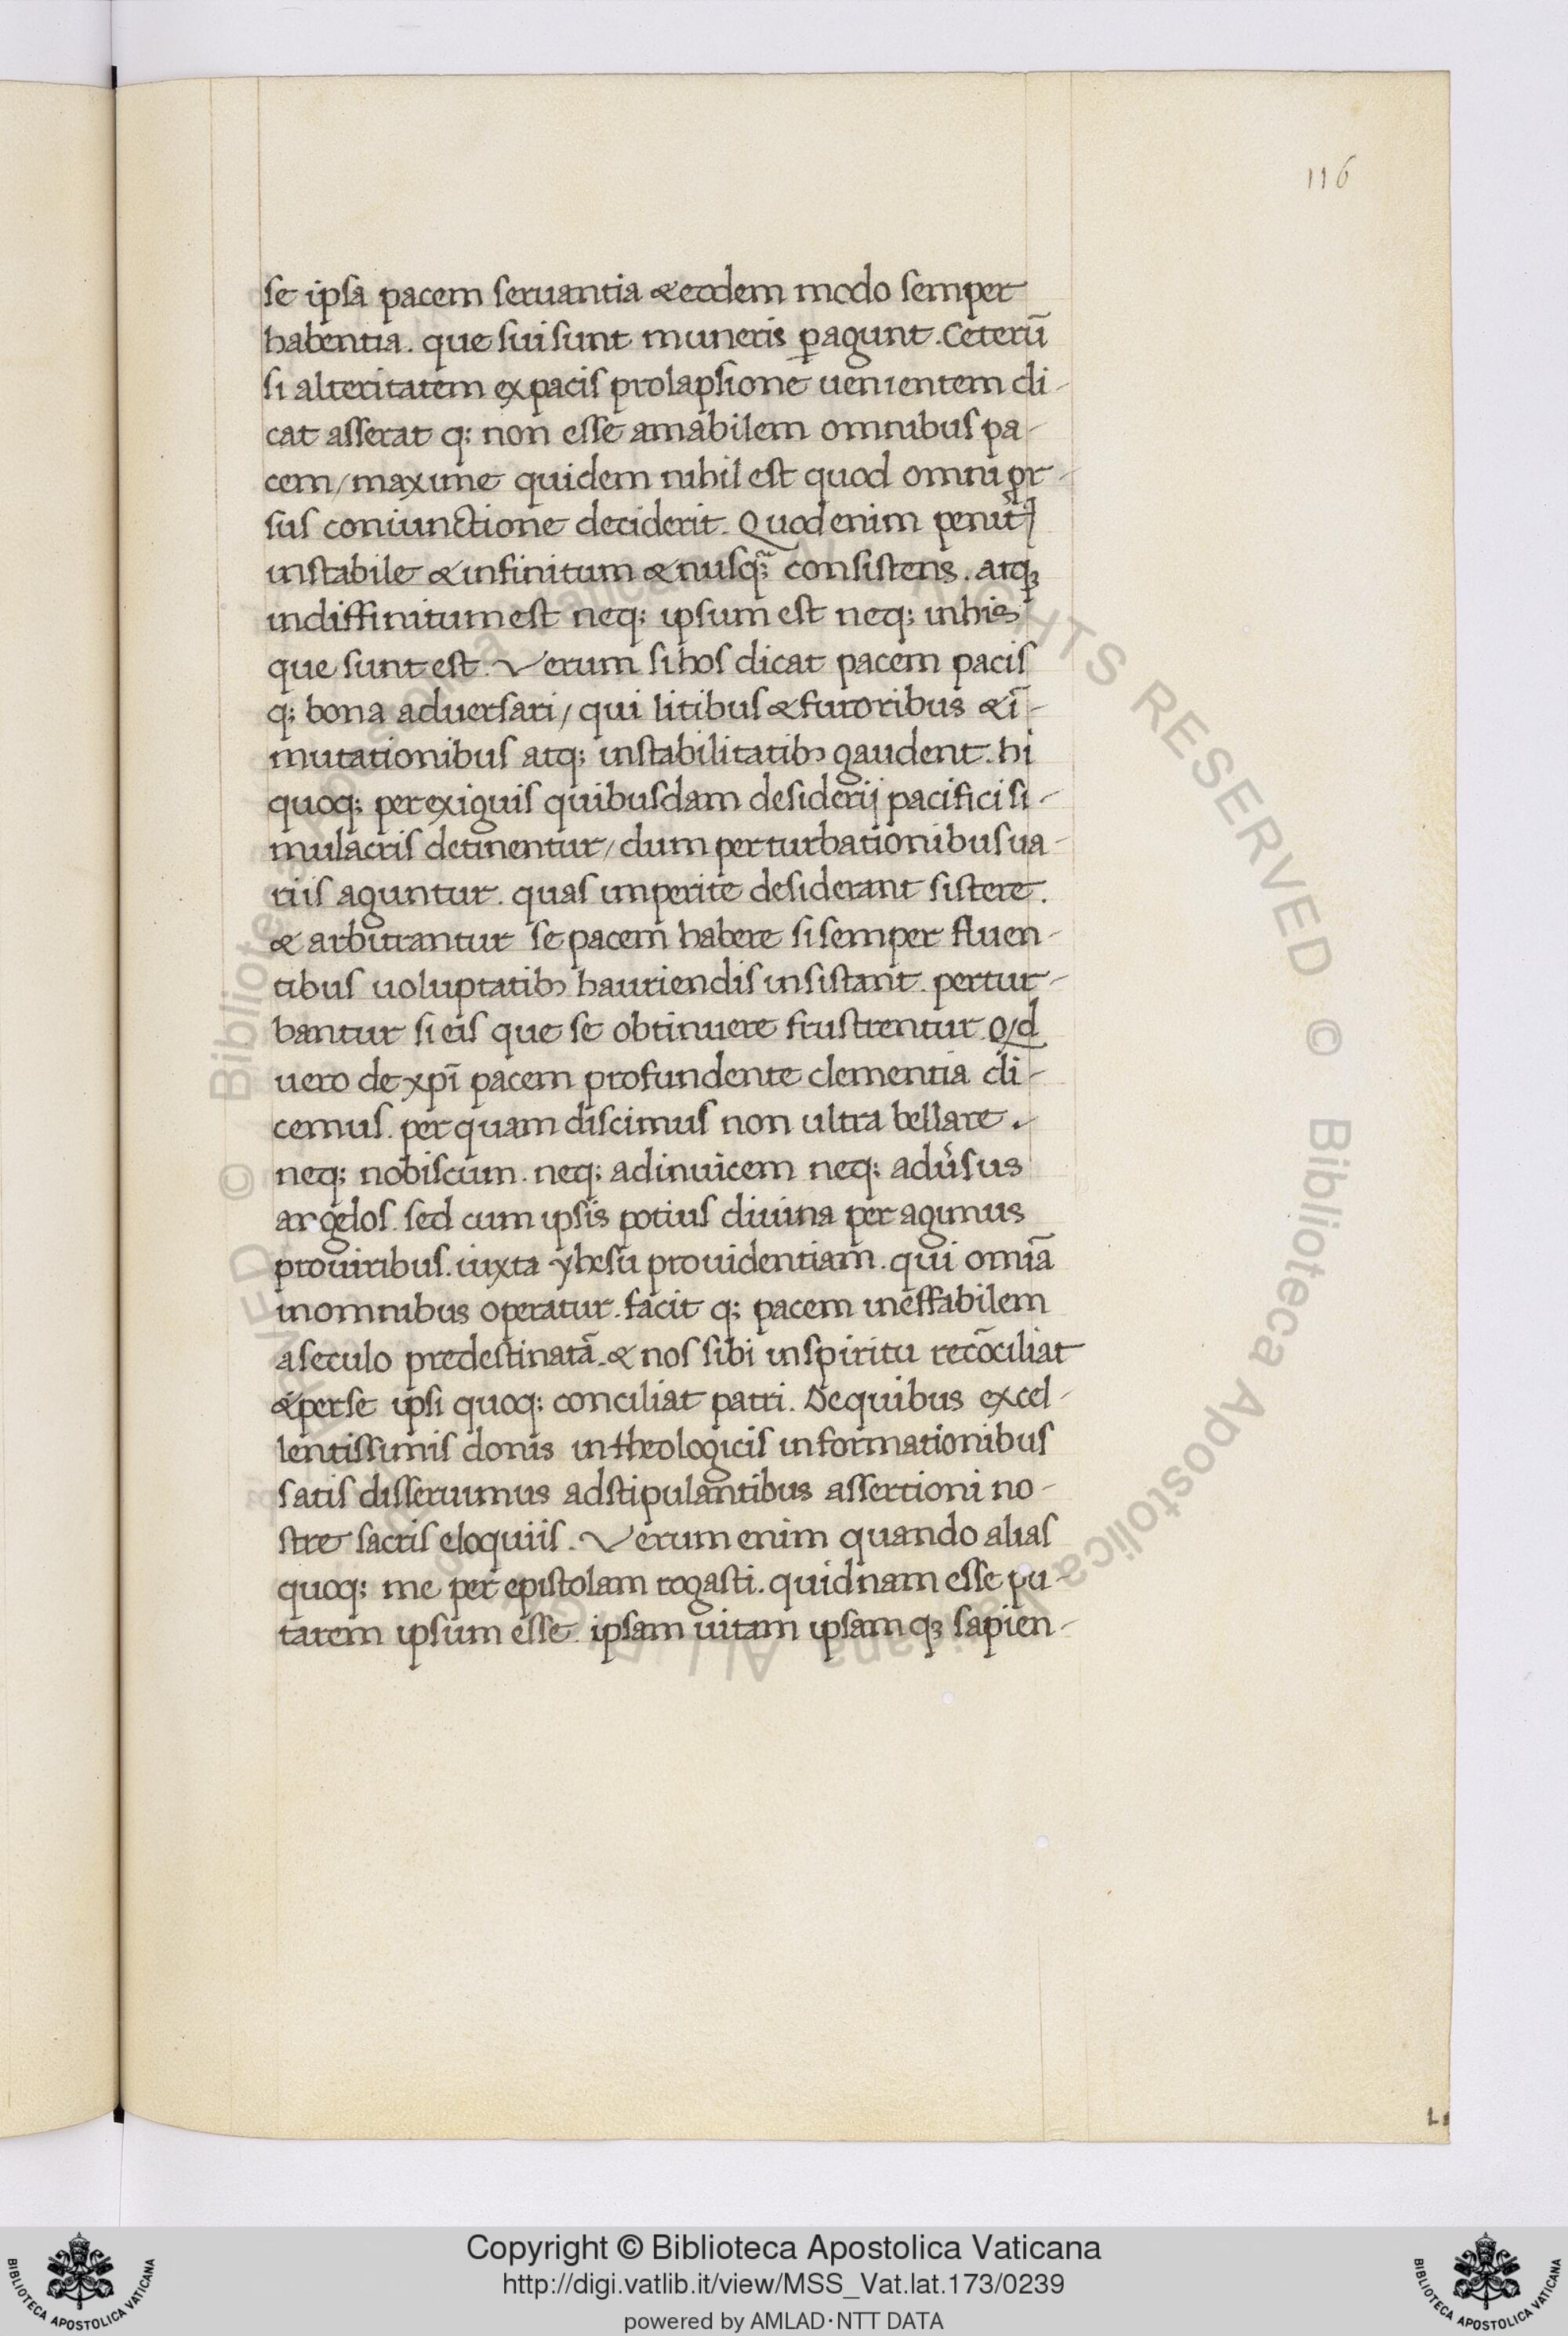 116
se ipsa pacem seruantia & eodem modo semper
habentia. que sui sunt muneris ꝑagunt. Ceterũ
si alteritatem ex pacis prolapsione uenientem di-
cat asserat q; non esse amabilem omnibus pa-
cem/ maxime quidem nihil est quod omni ꝓr-
sus coniunctione deciderit. Quod enim penit᷒
instabile & infinitum & nusq;̃ consistens. atqꝫ
indiffinitum est neq; ipsum est neq; in his
que sunt est. Verum si hos dicat pacem pacis
q; bona aduersari/ qui litibus & furoribus & ĩ-
mutationibus atq; instabilitatibꝫ gaudent. hi
quoq; perexiguis quibusdam desiderij pacifici si-
mulacris detinentur/ dum perturbationibus ua-
riis aguntur. quas imperite desiderant sistere.
& arbitrantur se pacem habere si semper fluen-
tibus uoluptatibꝫ hauriendis insistant. pertur-
bantur si eis que se obtinuere frustrentur. Qd
uero de xpĩ pacem profundente clementia di-
cemus. per quam discimus non ultra bellare.-
neq; nobiscum. neq; adinuicem neq; adu̾sus
angelos. sed cum ipsis potius diuina per agimus
pro uiribus. iuxta yhesu prouidentiam. qui omĩa
in omnibus operatur. facit q; pacem ineffabilem
a seculo predestinatã. & nos sibi in spiritu recõciliat
& per se ipsi quoq; conciliat patri. De quibus excel-
lentissimis donis in theologicis informationibus
satis disseruimus adstipulantibus assertioni no-
stre sacris eloquiis. Verum enim quando alias
quoq; me per epistolam rogasti. quidnam esse pu-
tarem ipsum esse. ipsam uitam ipsam qꝫ sapien-
Copyright © Biblioteca Apostolica Vaticana
http://digi.vatlib.it/view/MSS_Vat.lat.173/0239
powered by AMLAD·NTT DATA
BIBLIOTECA APOSTOLICA VATICANA
BIBLIOTECA APOSTOLICA VATICANA